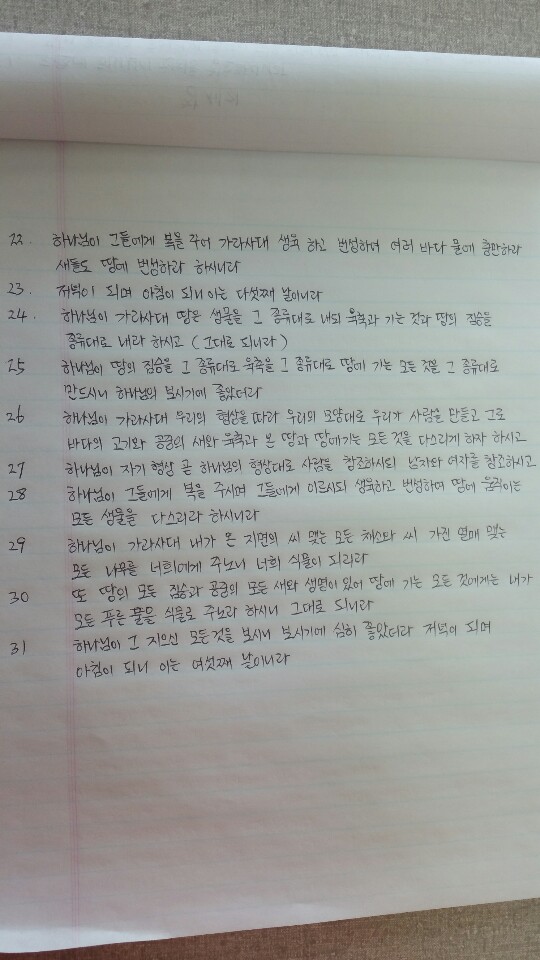 22. 하나님이 그들에게 복을 주어 가라사대 생육 하고 번성하여 여러 바다 물에 충만하라
새들도 땅에 번성하라 하시니라
23. 저녁이 되며 아침이 되니 이는 다섯째 날이니라
24. 하나님이 가라사대 땅은 생물을 그 종류대로 내되 육축과 기는 것과 땅의 짐승을
종류대로 내라 하시고 (그대로 되니라)
25 하나님이 땅의 짐승을 그 종류대로 육축을 그 종류대로 땅에 기는 모든 것을 그 종류대로
만드시니 하나님의 보시기에 좋았더라
26 하나님이 가라사대 우리의 형상을 따라 우리의 모양대로 우리가 사람을 만들고 그로
바다의 고기와 공중의 새와 육축과 온 땅과 땅에기는 모든 것을 다스리게 하자 하시고
27 하나님이 자기 형상 곧 하나님의 형상대로 사람을 창조하시되 남자와 여자를 창조하시고
28 하나님이 그들에게 복을 주시며 그들에게 이르시되 생육하고 번성하여 땅에 움직이는
모든 생물을 다스리라 하시니라
29 하나님이 가라사대 내가 온 지면의 씨 맺는 모든 채소와 씨 가진 열매 맺는
모든 나무를 너희에게 주노니 너희 식물이 되리라
30 또 땅의 모든 짐승과 공중의 모든 새와 생명이 있어 땅에 기는 모든 것에게는 내가
모든 푸른 풀을 식물로 주노라 하시니 그대로 되니라
31 하나님이 그 지으신 모든것을 보시니 보시기에 심히 좋았더라 저녁이 되며
아침이 되니 이는 여섯째 날이니라